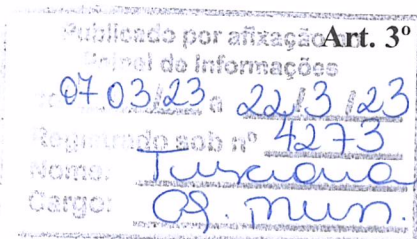 Publicado por afixação Art. 3º
Painel de Informações
07/03/23 a 22/3/23
Registrado sob nº 4273
Nome:
Cargo: Ag. mun.